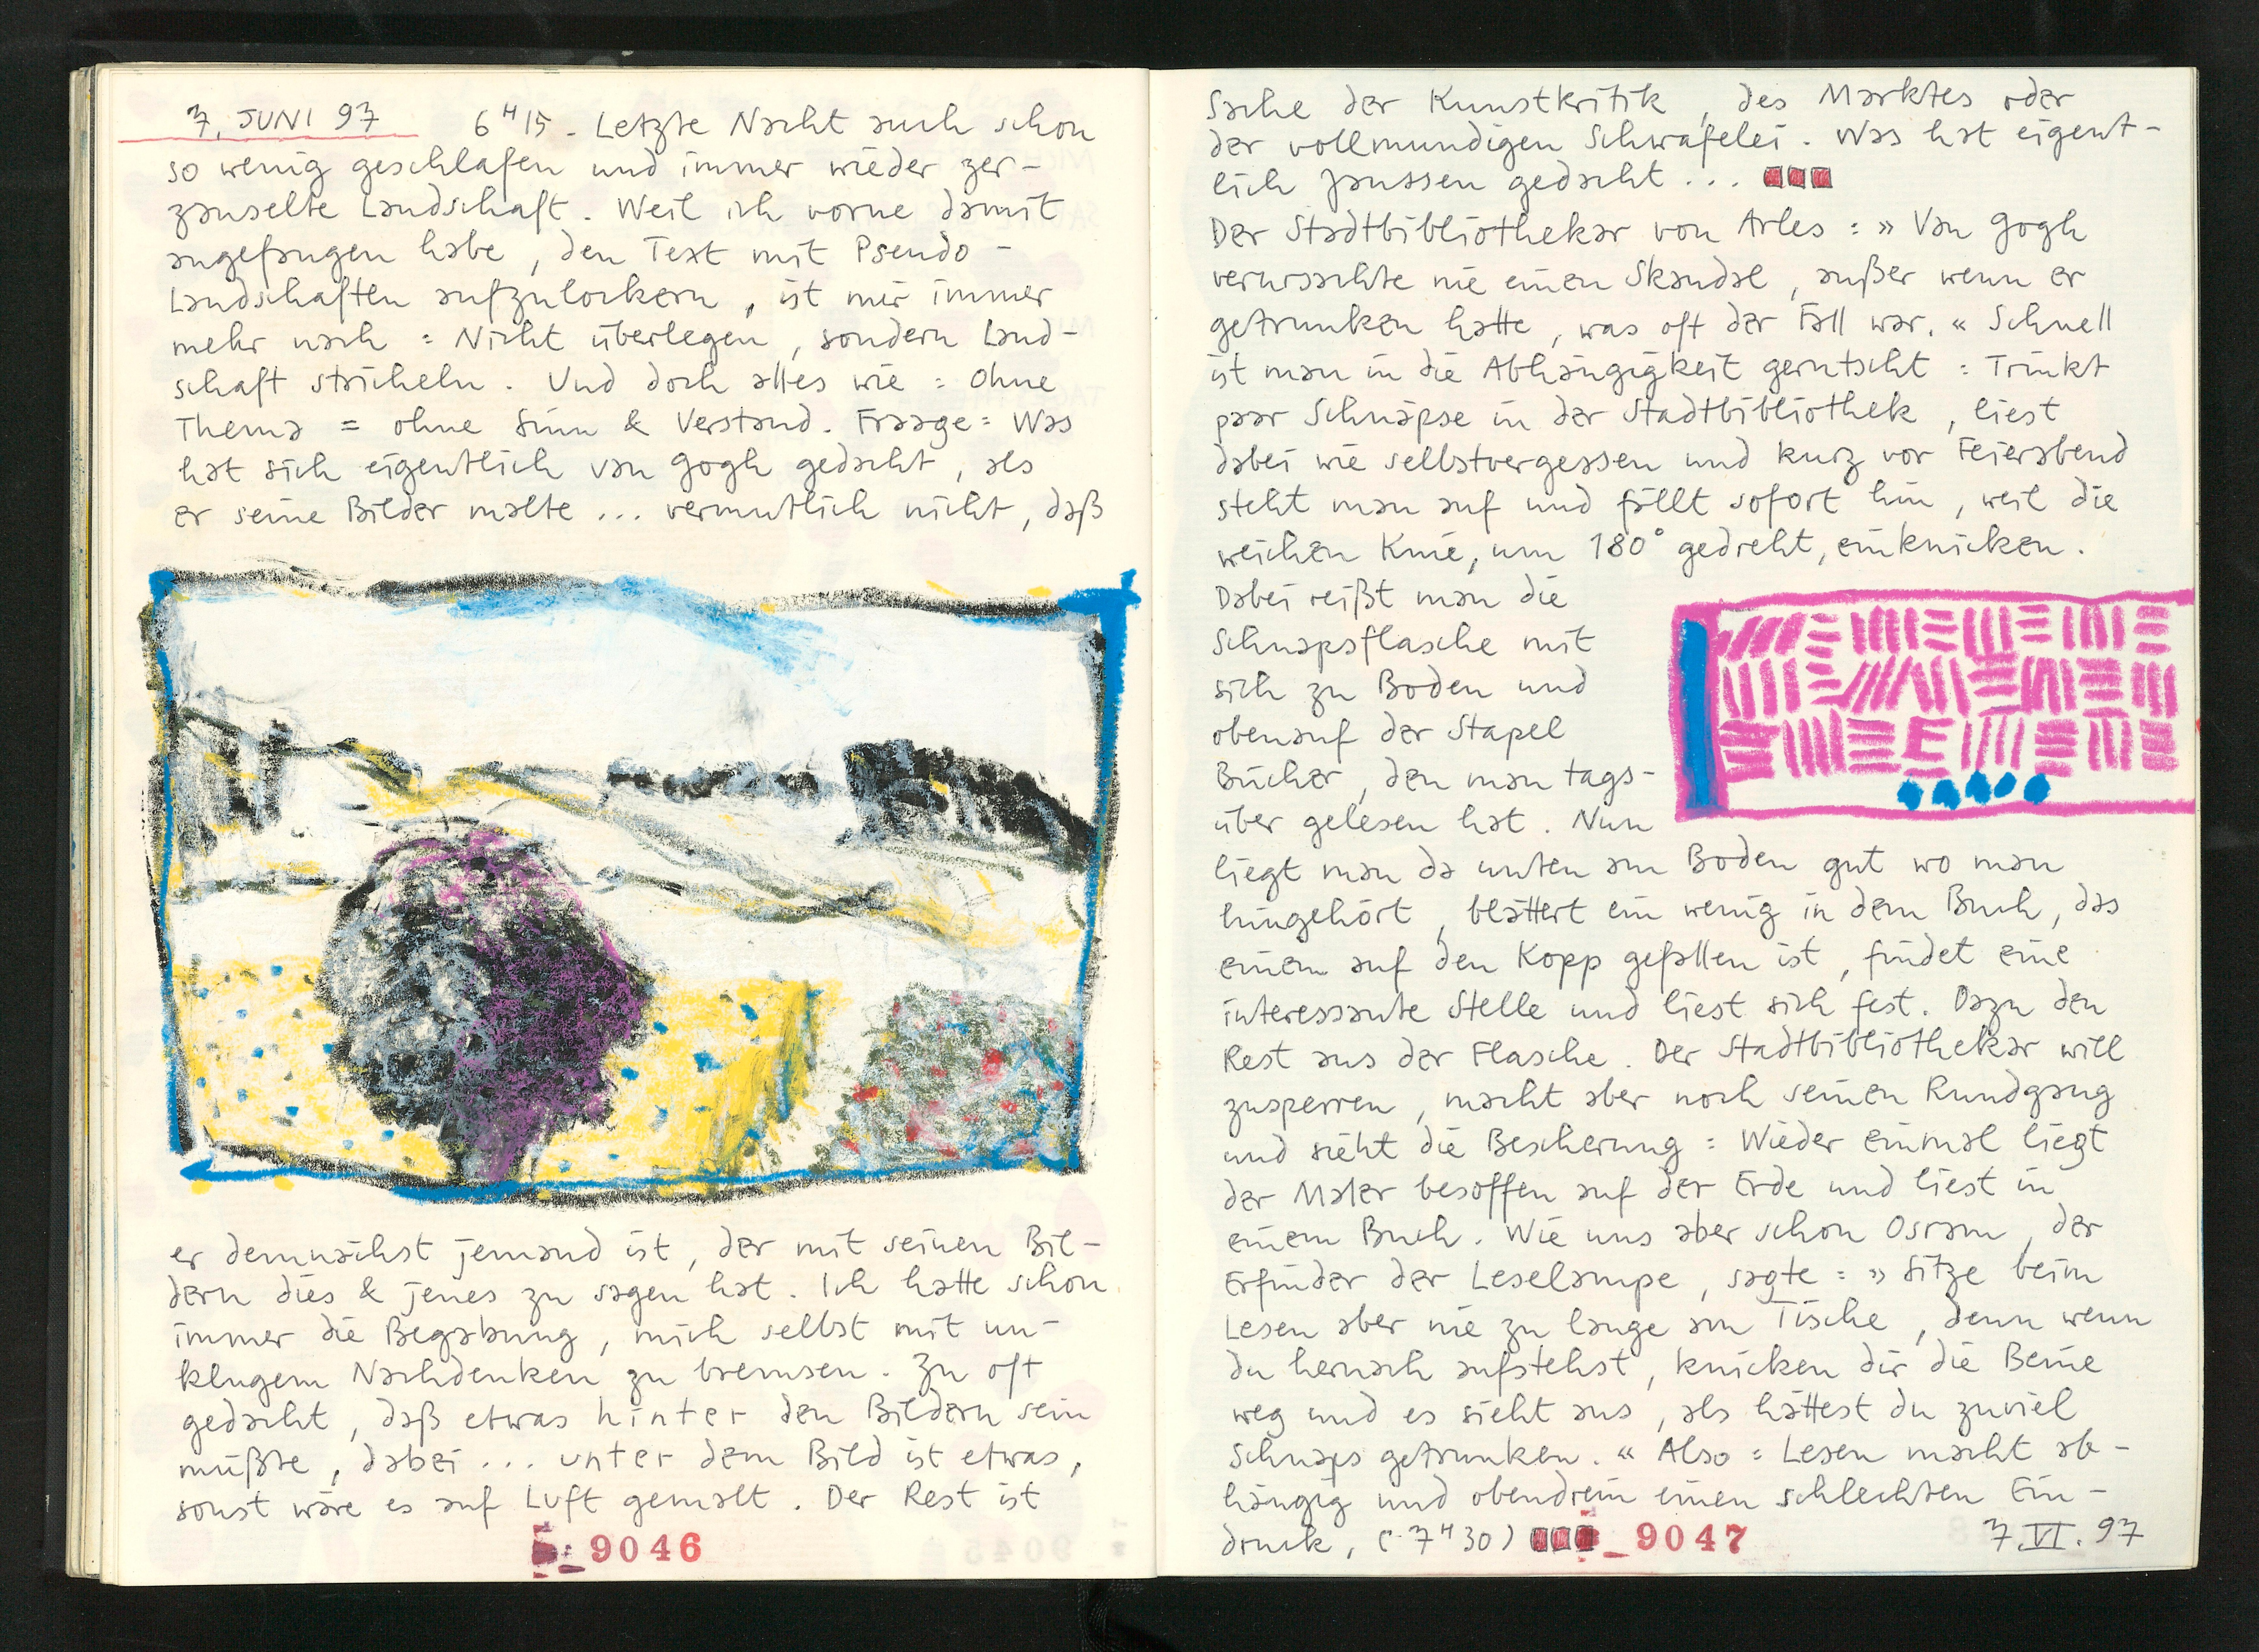 7. JUNI 97 6ᴴ15 - Letzte Nacht auch schon
so wenig geschlafen und immer wieder zer-
zauselte Landschaft. Weil ich vorne damit
angefangen habe, den Text mit Pseudo-
Landschaften aufzulockern, ist mir immer
mehr nach: Nicht überlegen, sondern Land-
schaft stricheln. Und doch alles wie: Ohne
Thema = ohne Sinn & Verstand. Fraage: Was
hat sich eigentlich van Gogh gedacht, als
er seine Bilder malte ... vermutlich nicht, daß
er demnächst jemand ist, der mit seinen Bil-
dern dies & jenes zu sagen hat. Ich hatte schon
immer die Begabung, mich selbst mit un-
klugem Nachdenken zu bremsen. Zu oft
gedacht, daß etwas hinter den Bildern sein
müßte, dabei ... unter dem Bild ist etwas,
sonst wäre es auf Luft gemalt. Der Rest ist
9046
Sache der Kunstkritik, des Marktes oder
der vollmundigen Schwafelei. Was hat eigent-
lich Janssen gedacht ...
Der Stadtbibliothekar von Arles: »Van Gogh
verursachte nie einen Skandal, außer wenn er
getrunken hatte, was oft der Fall war.« Schnell
ist man in die Abhängigkeit gerutscht: Trinkt
paar Schnäpse in der Stadtbibliothek, liest
dabei wie selbstvergessen und kurz vor Feierabend
steht man auf und fällt sofort hin, weil die
weichen Knie, um 180° gedreht, einknicken.
Dabei reißt man die
Schnapsflasche mit
sich zu Boden und
obenauf der Stapel
Bücher, den man tags-
über gelesen hat. Nun
liegt man da unten am Boden gut wo man
hingehört, blättert ein wenig in dem Buch, das
einem auf den Kopp gefallen ist, findet eine
interessante Stelle und liest sich fest. Dazu den
Rest aus der Flasche. Der Stadtbibliothekar will
zusperren, macht aber noch seinen Rundgang
und sieht die Bescherung: Wieder einmal liegt
der Maler besoffen auf der Erde und liest in
einem Buch. Wie uns aber schon Osram, der
Erfinder der Leselampe, sagte: »Sitze beim
Lesen aber nie zu lange am Tische, denn wenn
du hernach aufstehst, knicken dir die Beine
weg und es sieht aus, als hättest du zuviel
Schnaps getrunken.« Also: Lesen macht ab-
hängig und obendrein einen schlechten Ein-
druck, (-7ᴴ30) 9047 7.VI.97